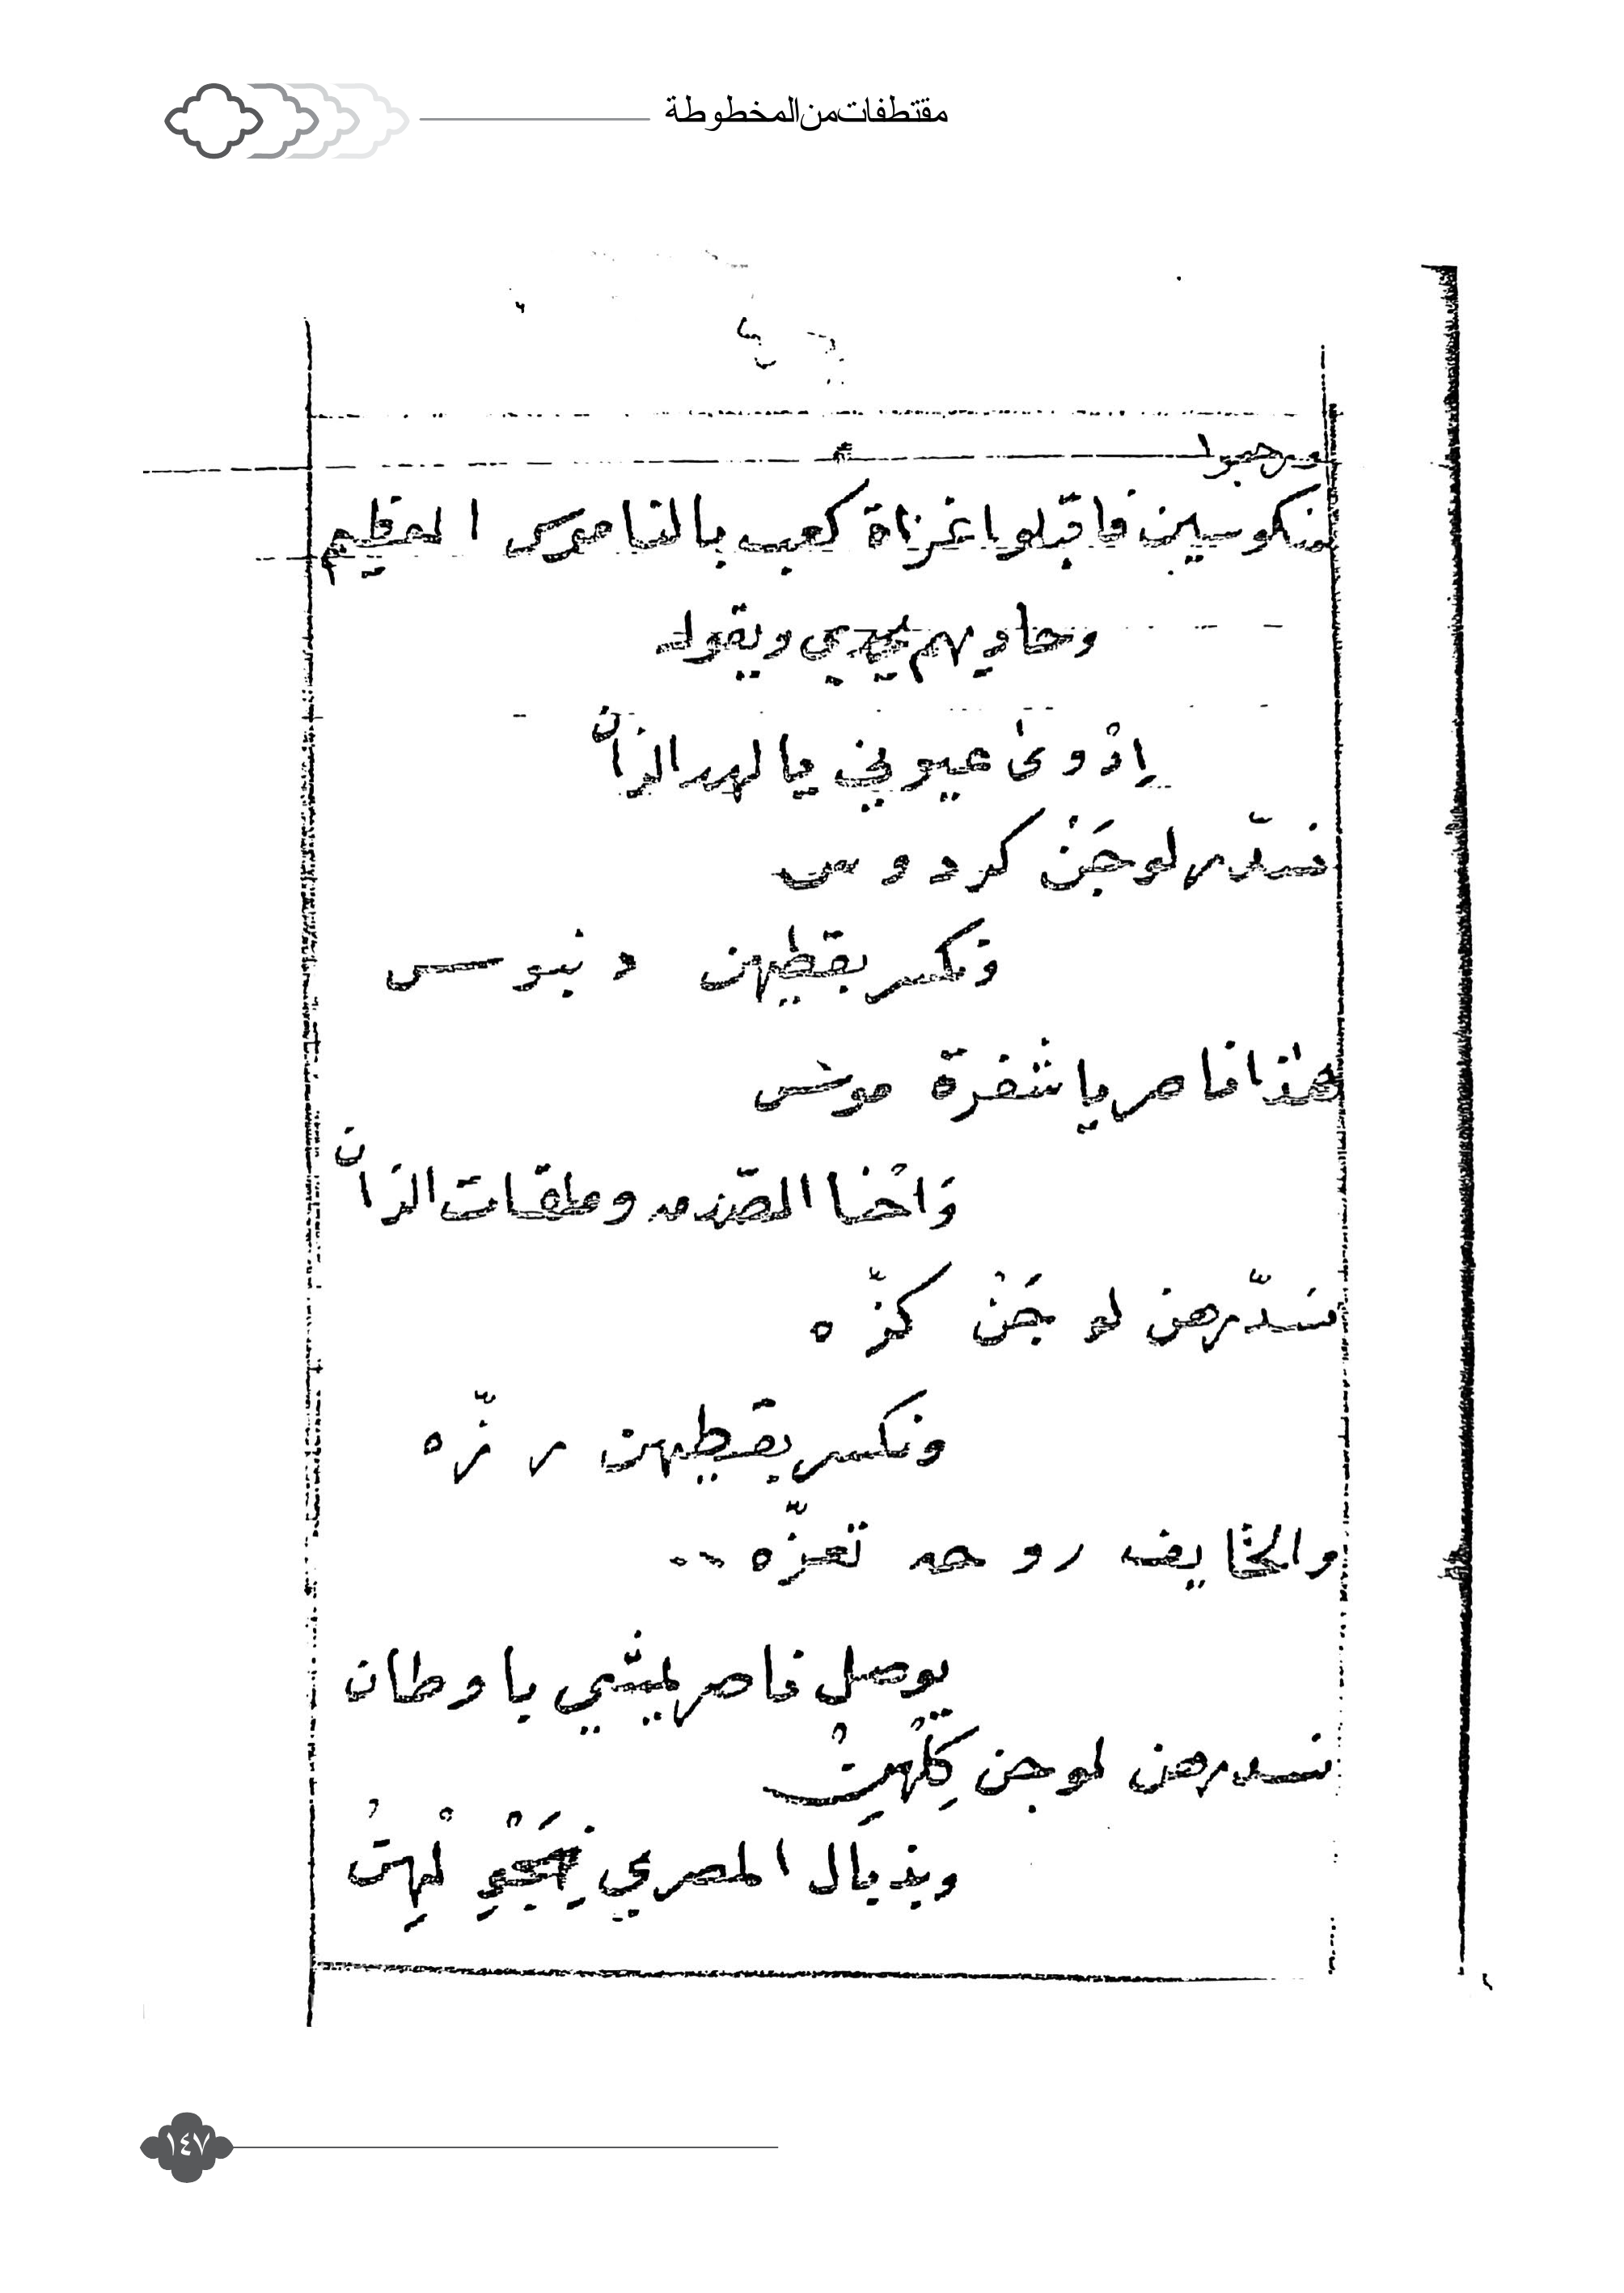 مقتطفات من المخطوطة
ورجعوا
منكوسين فاقبلوا غزاة كعب بالناموس العظيم
وحاديهم يحدي ويقوله
اِذْوىٰ عيوني يا لهد الزان
نسدّر لو جَنْ كردوس
ونكسر بقطيهن دنبوس
هٰذا ناصر يا شفرة موس
وَاحْنا الصّزمه وملقات الزان
نسدّرهن لو جَنْ كزّه
ونكسر بقطيهن رزّه
والخايف روحه تعزّه ..
يوصل ناصر لميثمي باوطان
نسدرهن لو جن كِلْهِنْ
وبذيال المصري لْهِنْ
١٤٧